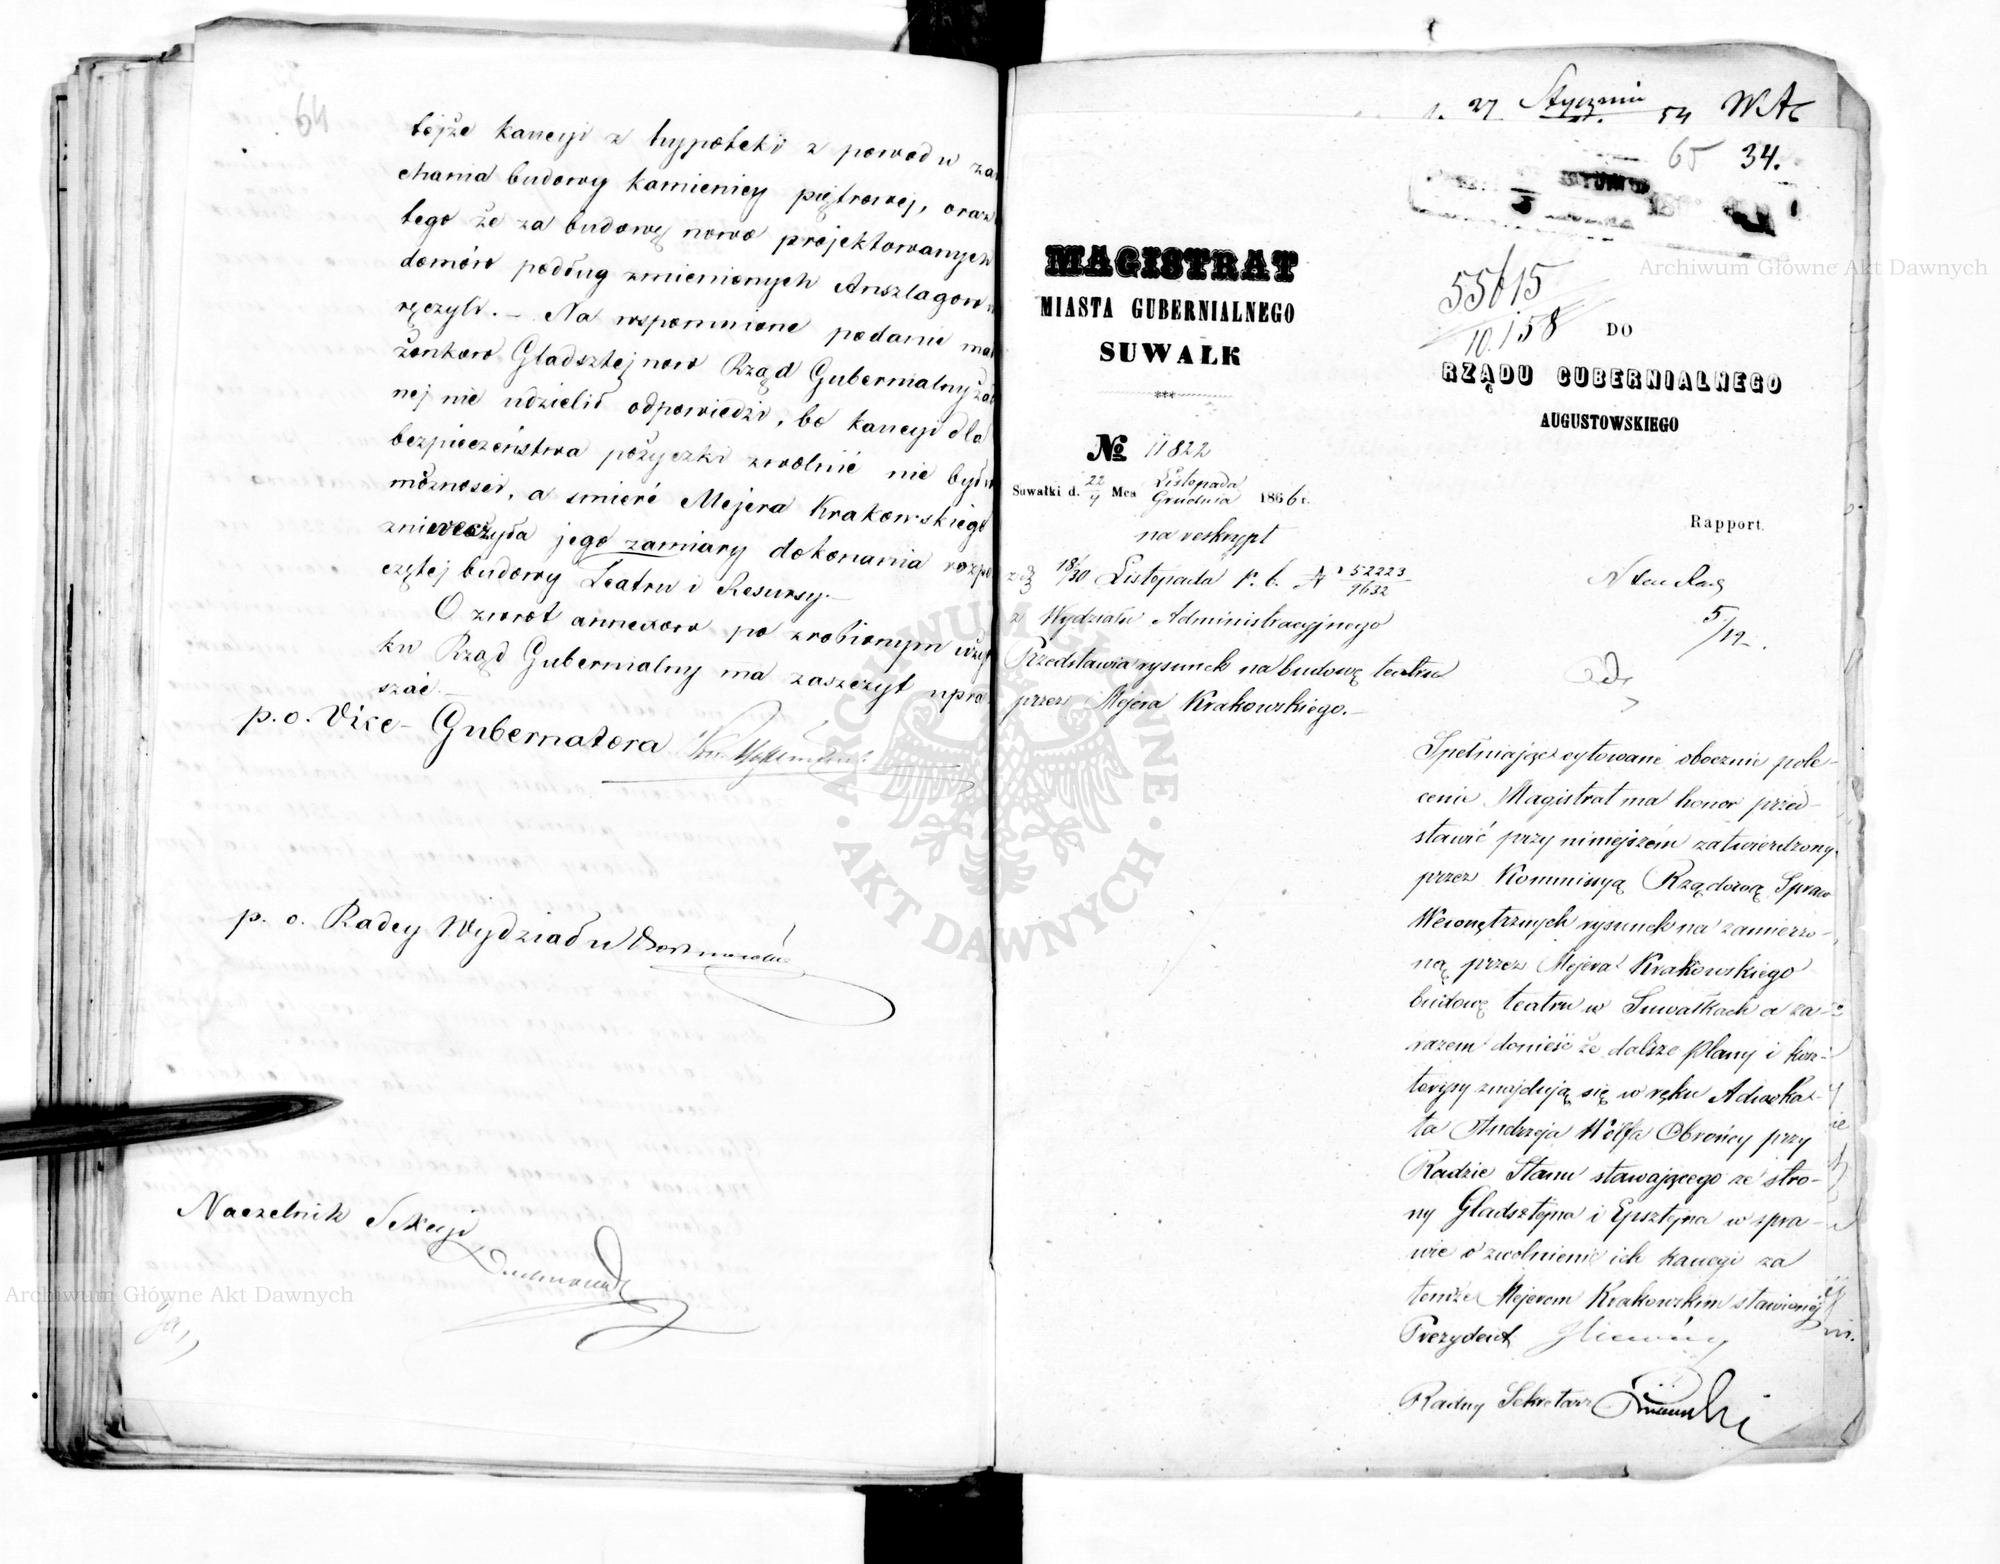 64
tejże kaucyi z hypoteki z powodu za
chania budowy kamienicy piętrowej, oraz
tego że za budowę nowo projektowanych
domów podług zmienionych Anszlagow
ręczyli. – Na wspomnione podanie mał
żonkow Gladsztejnow Rząd Gubernialny żad
nej nie udzielił odpowiedzi, bo kaucyi dla
bezpieczeństwa pożyczki zwolnić nie był w
możnosci, a smierć Mejera Krakowskiego
zniweczyła jego zamiary dokonania rozpo
czętej budowy Teatru i Resursy. –
O zwrot annexow po zrobionym użyt
ku Rząd Gubernialny ma zaszczyt upra
szać. –
p. o. Vice-Gubernatora
p. o. Radcy Wydziału
Naczelnik Sekcyi
d. 27 Stycznia 54
65 34.
55615
10.158
MAGISTRAT
MIASTA GUBERNIALNEGO
SUWAŁK
№ 11822
Suwałki d. 22/4 Mca Listopada/Grudnia 1866 r.
na reskrypt
z d. 18/30 Listopada r. b. N 52223/9632
z Wydziału Administracyjnego
Przedstawia rysunek na budowę teatru
przez Mejera Krakowskiego. –
DO
RZĄDU GUBERNIALNEGO
AUGUSTOWSKIEGO
Rapport.
5/12.
Spełniając cytowane obocznie pole-
cenie Magistrat ma honor przed-
stawić przy niniejszém zatwierdzony
przez Kommissyą Rządową Spraw
Wewnętrznych rysunek na zamierzo-
ną przez Mejera Krakowskiego
budowę teatru w Suwałkach a za-
razem donieść że dalsze plany i kosz-
torysy znajdują się w ręku Adwoka-
ta Andrzeja Wolfa Obrońcy przy
Radzie Stanu stawającego ze stro-
ny Gladsztejna i Epsztejna w spra-
wie o zwolnienie ich kaucyi za
temże Mejerem Krakowskim stawionéj
Prezydent
Radny Sekretarz
Archiwum Główne Akt Dawnych
Archiwum Główne Akt Dawnych
ARCHIWUM GŁÓWNE
AKT DAWNYCH